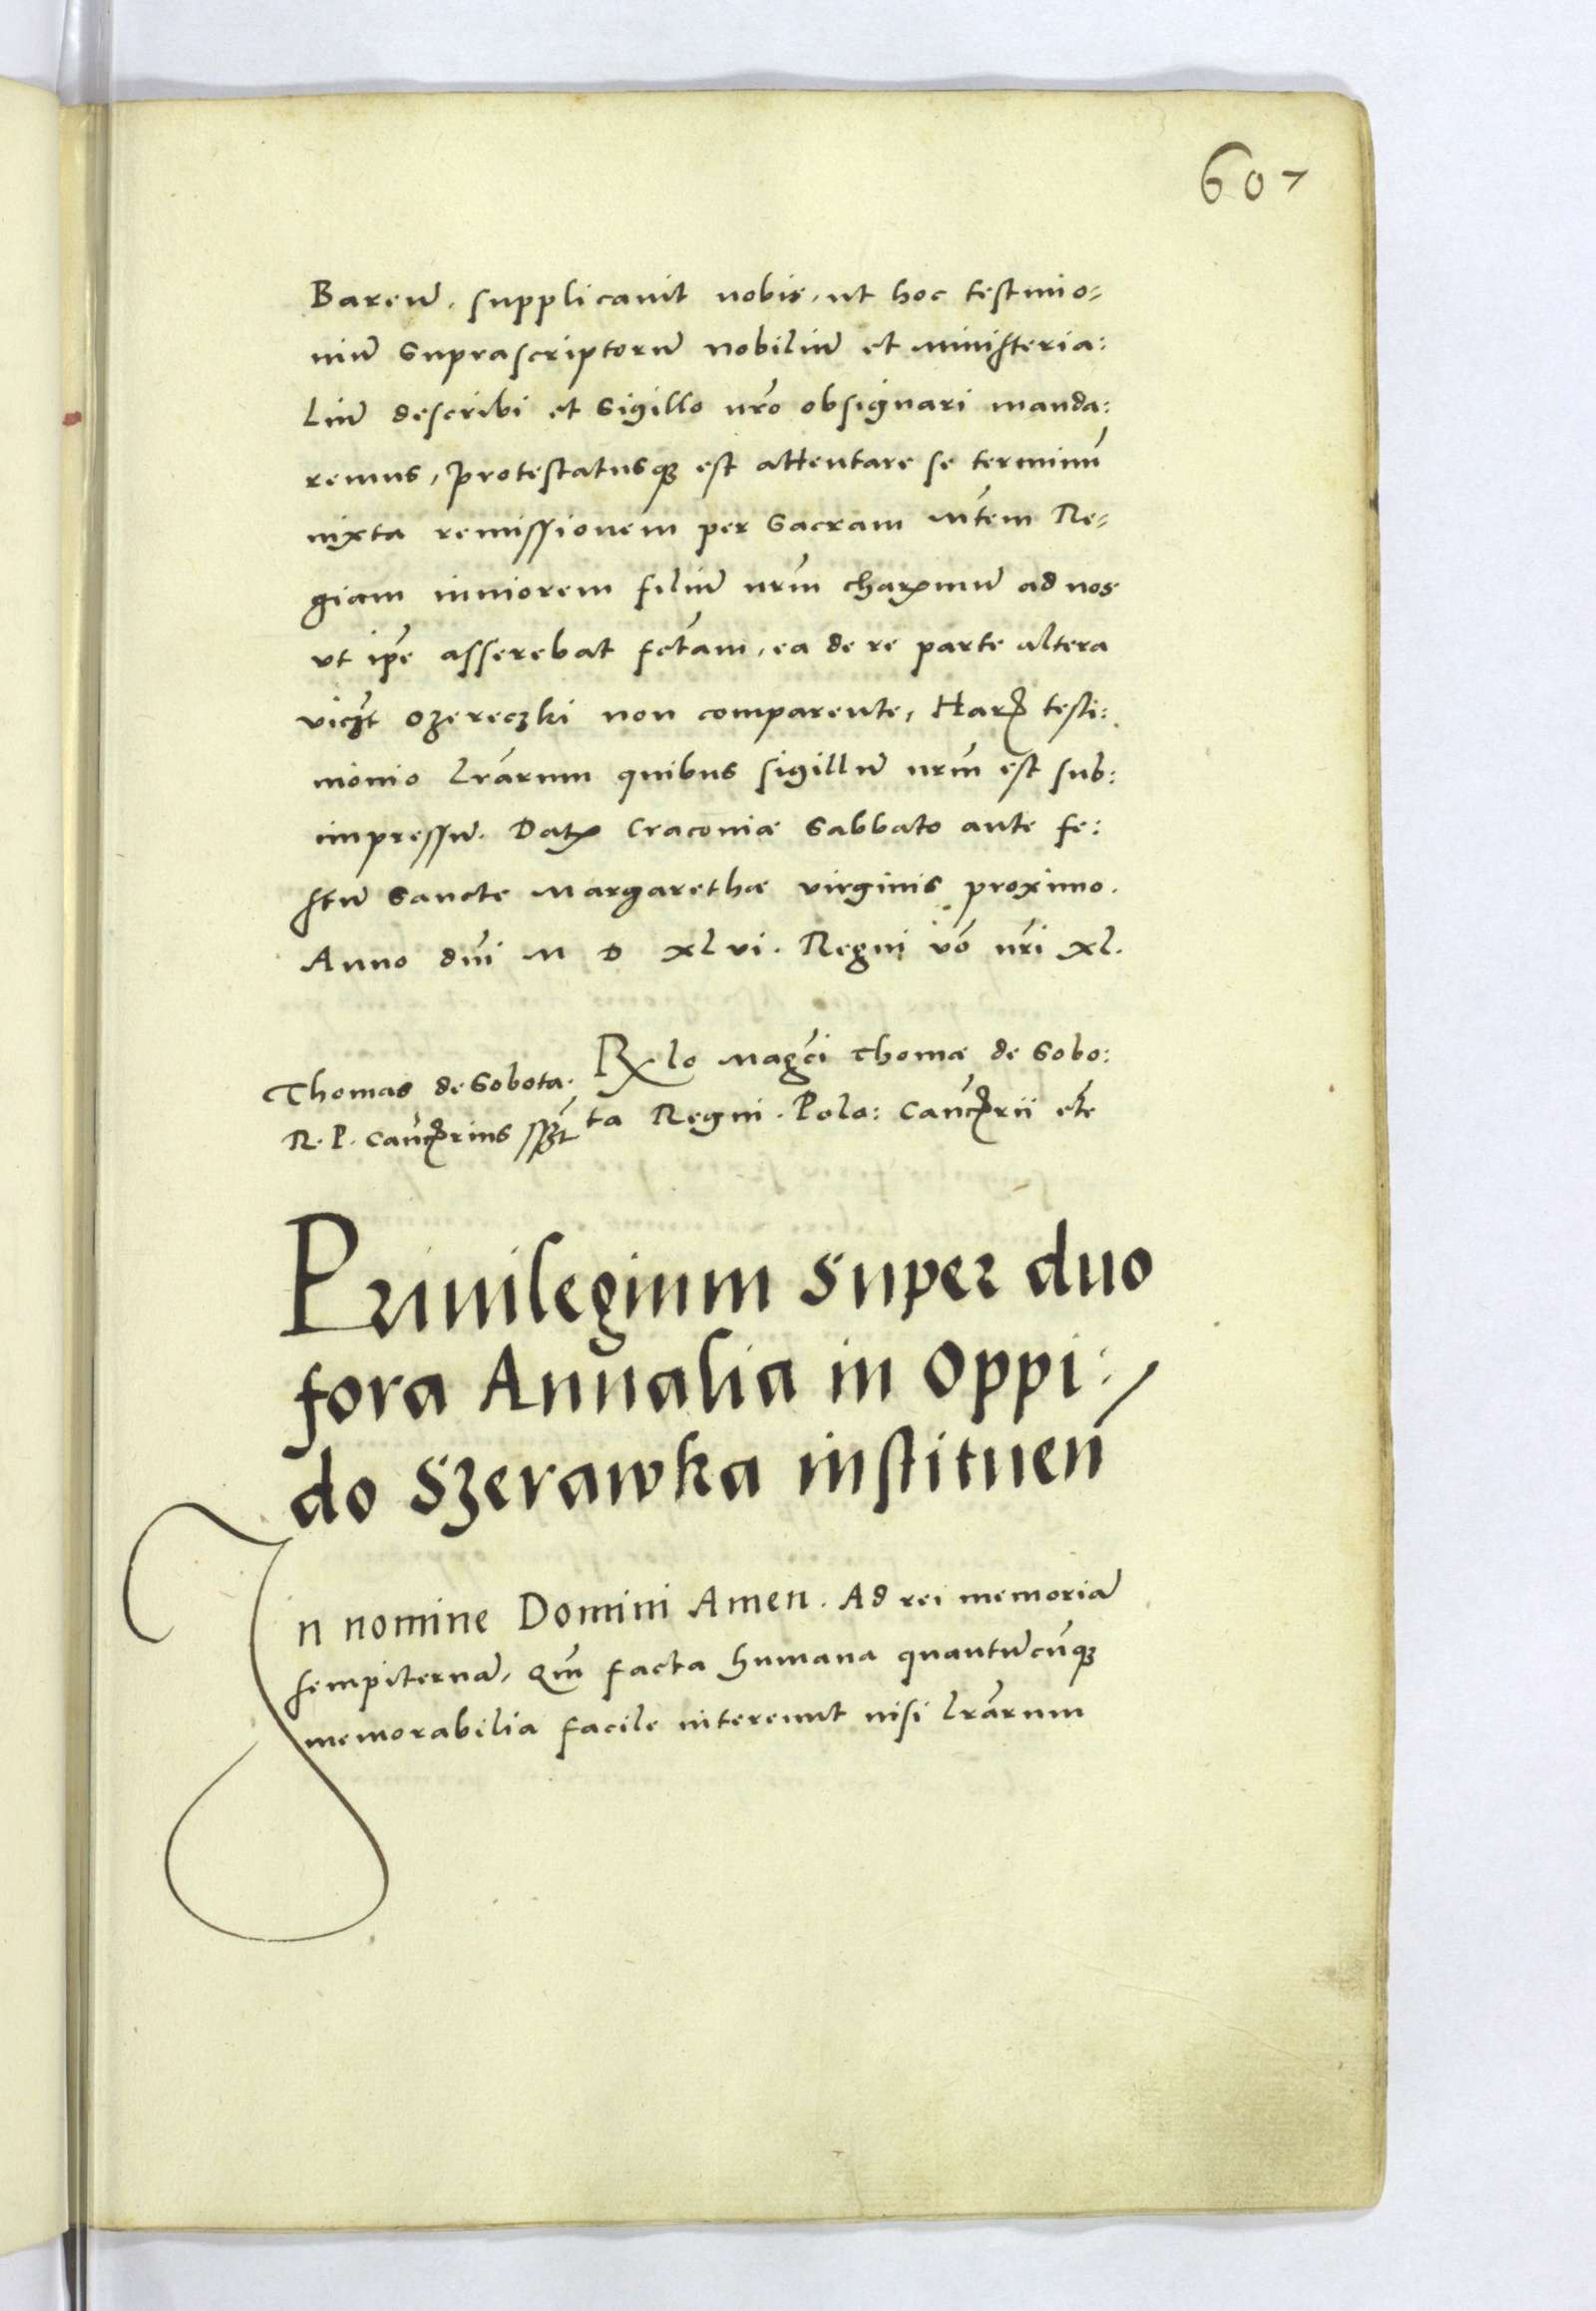 607
Barēn̄. supplicavit nobis, ut hoc testimo-
niū Suprascriptorū nobiliū et ministeria:
liū describi et Sigillo nr̄o obsignari manda:
remus, protestatusq̨ est attentare se terminū
iuxta remissionem per Sacram Mt̄em Re-
giam iuniorem filiū nr̄m charꝫmū ad nos
vt ip̄e asserebat fc̄tam, ea de re parte altera
Ozereczki non comparente, Harꝫ testi:
monio Lr̄arum quibus sigillū nr̄m est sub:
impressū. Datꝫ Cracoviæ Sabbato ante fe:
stū Sancte Margarethæ virginis proximo.
Anno dn̄i M D XLvi. Regni vō nr̄i XL.
Rlō Maḡci Thomæ de Sobo:
ta Regni. Polo: Canc̄rii etc̄
Thomas de Sobota.
R. P. Canc̄rius sszt
Privilegium Super duo
fora Annalia in Oppi:
do Szerawka instituen̄
In nomine Domini Amen. Ad rei memoriā
sempiternā, Qm̄ facta humana quantūcūq̨
memorabilia facile intereunt nisi Lr̄arum